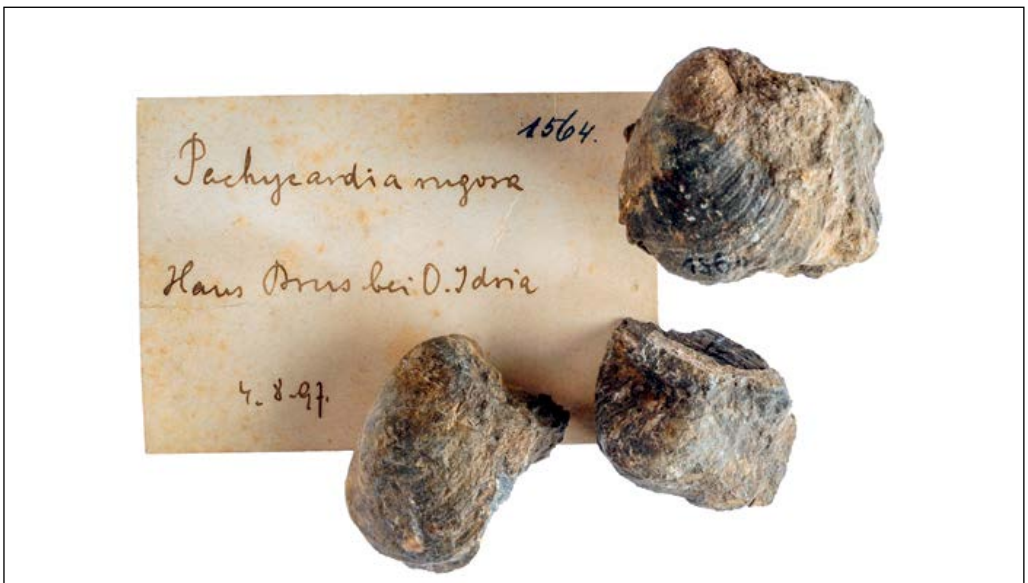 1564.
Pachycardia rugosa
Haus Brus bei O. Idria
4. 8. 97.